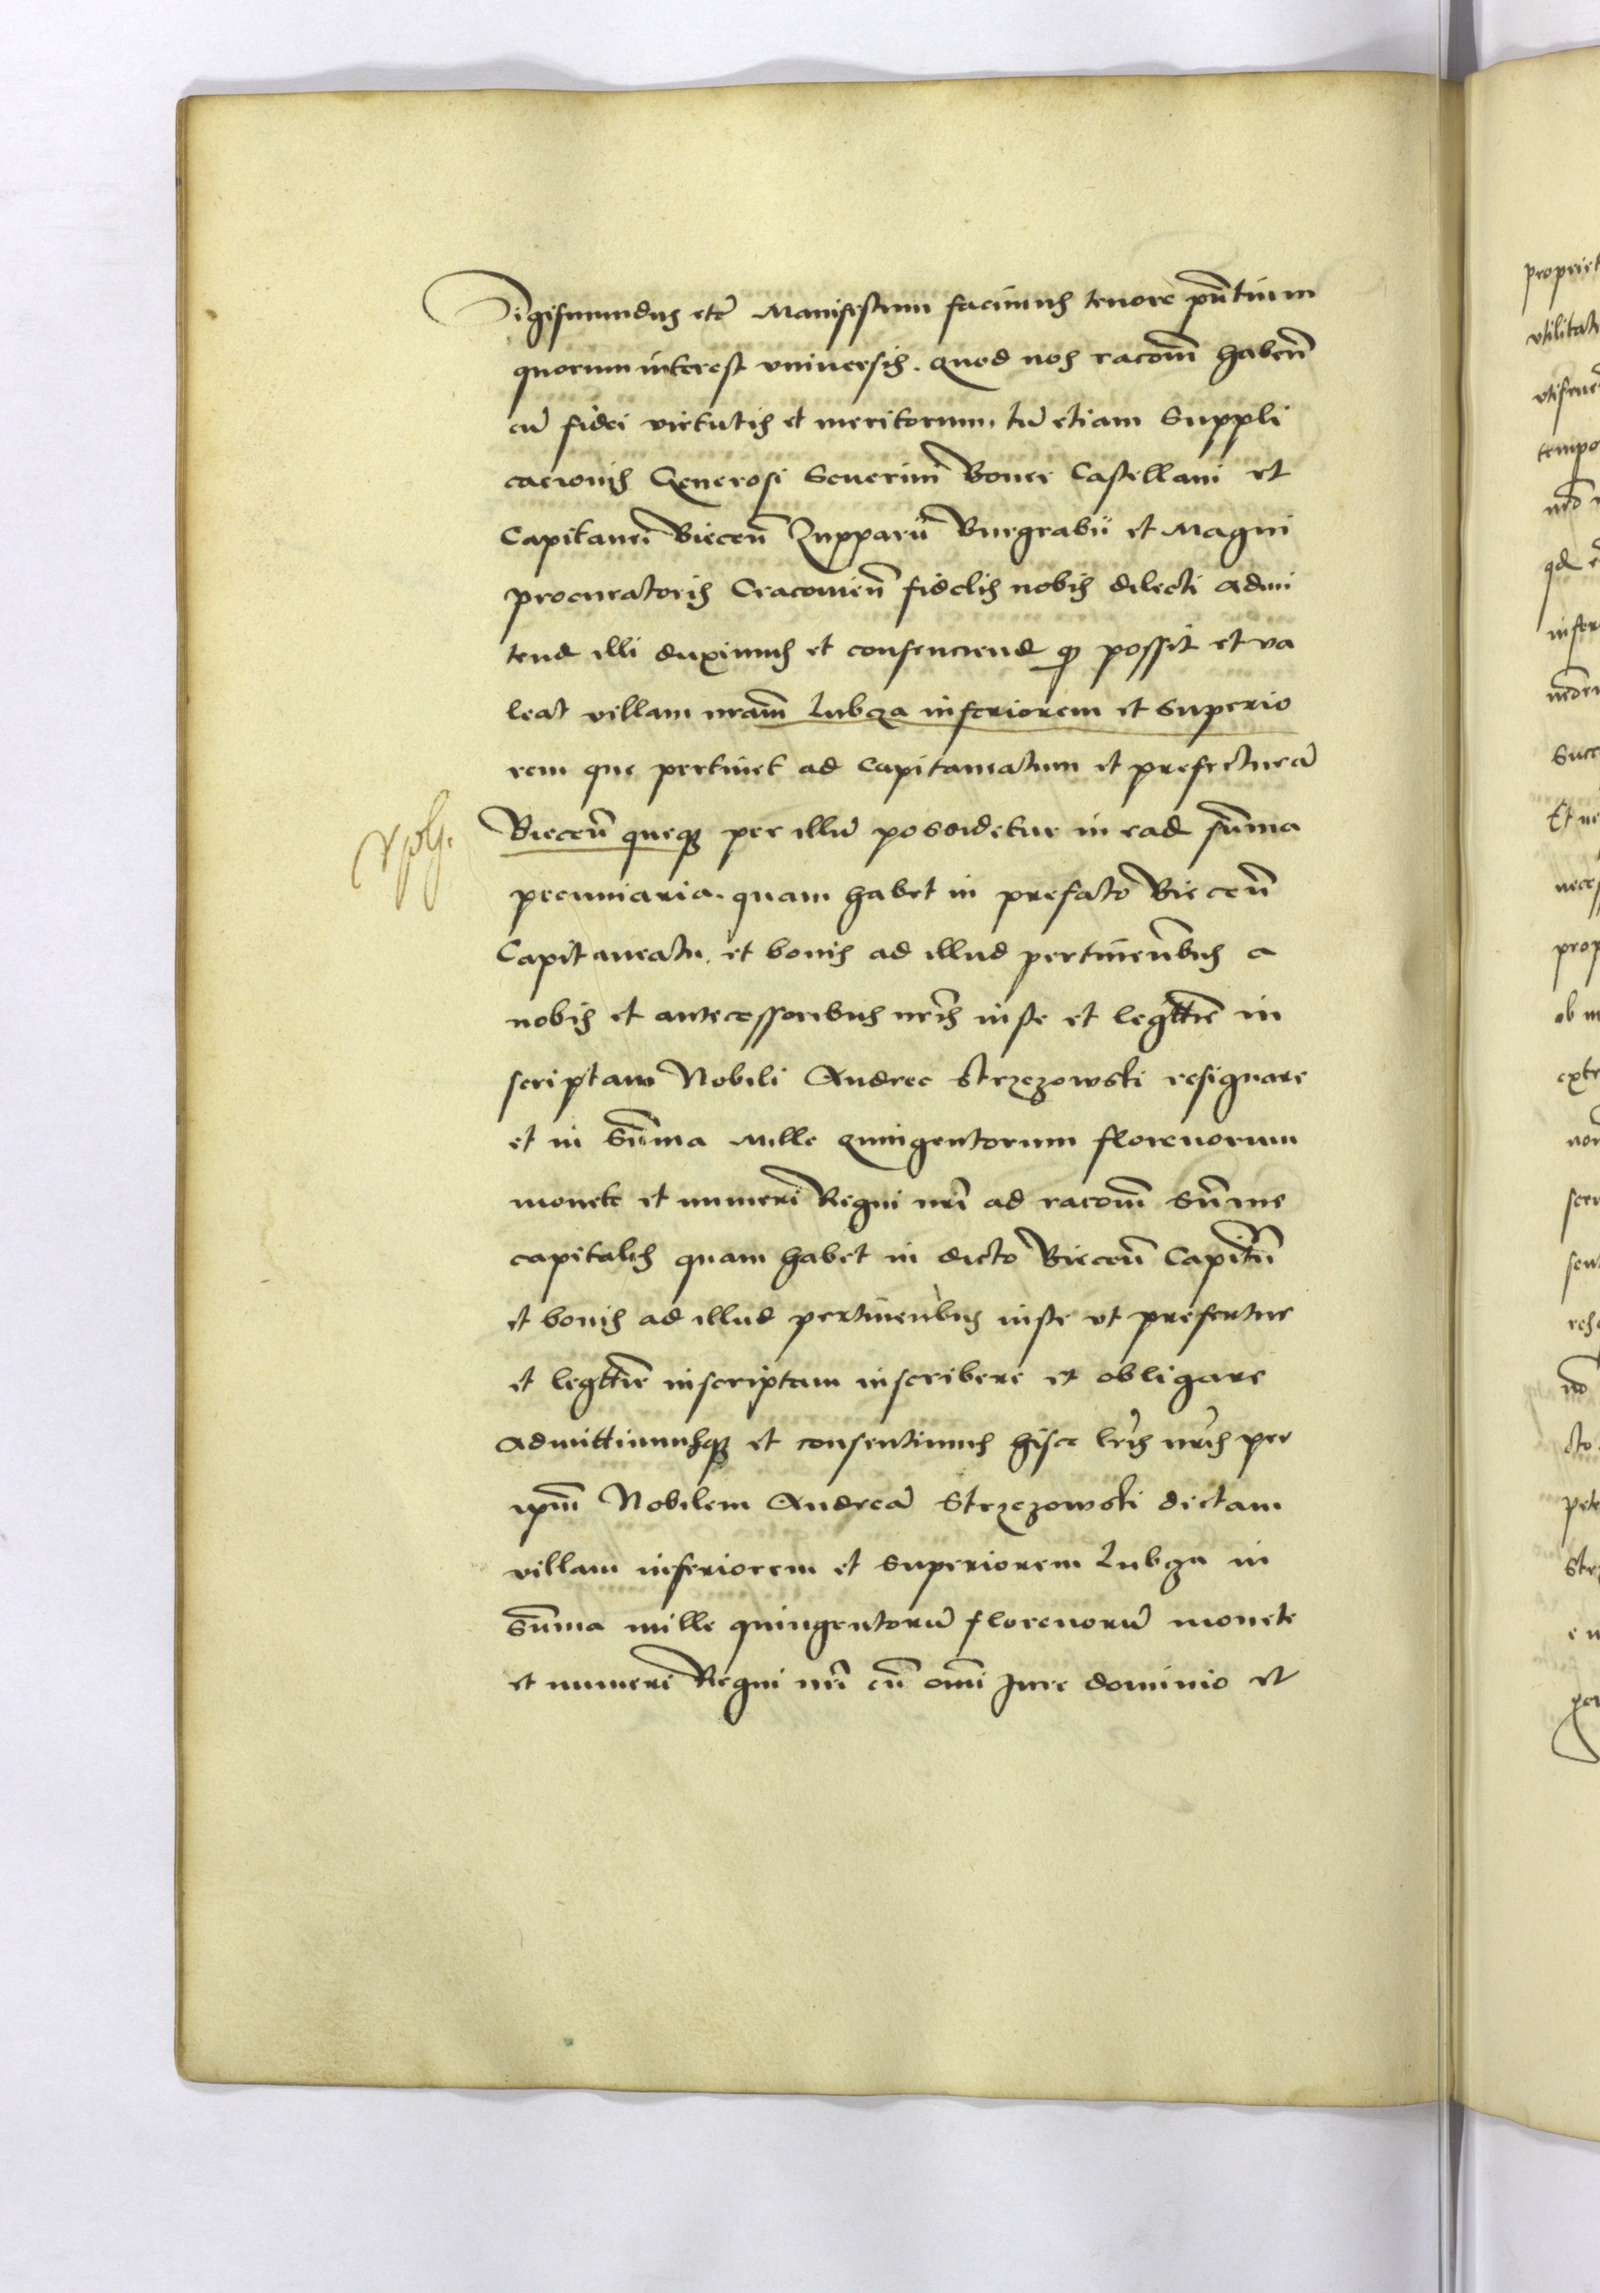 Sigismundus etc̄ Manifestum facimus tenore pñtium
quorum interest vniuersis. Quod nos racom̄ habeñ
cū fidei virtutis et meritorum, tū etiam Suppli
cacionis Generosi Seuerini Boner Castellani et
Capitanei Bieceñ Zupparū Burgrabii et Magni
procuratoris Cracouieñ fidelis nobis dilecti admi
tend illi duximus et consenciend qͦ possit et va
leat villam nram̄ Lubcza inferiorem et Superio
rem que pertinet ad Capitaneatum et prefecturā
Bieceñ queqꝫ per illū possidetur in ead sum̄a
pecuniaria. quam habet in prefato Bieceñ
Capitaneatu. et bonis ad illud pertineñbus a
nobis et antecessoribus nrīs iuste et legittīe in
scriptam Nobili Andree Strzezowski resignare
et in Sum̄a Mille Quingentorum florenorum
monete et numeri Regni nrī ad racom̄ Sum̄e
capitalis quam habet in dicto Bieceñ Capitñ
et bonis ad illud pertinenbus iuste vt prefertur
et legttīe inscriptam inscribere et obligare
Admittimusqꝫ et consentimus hisce lrīs nrīs per
ipm̄ Nobilem Andreā Strzezowski dictam
villam inferiorem et Superiorem Lubcza in
Sum̄a mille quingentorū florenorū monete
et numeri Regni nrī cū om̄i Jure dominio et